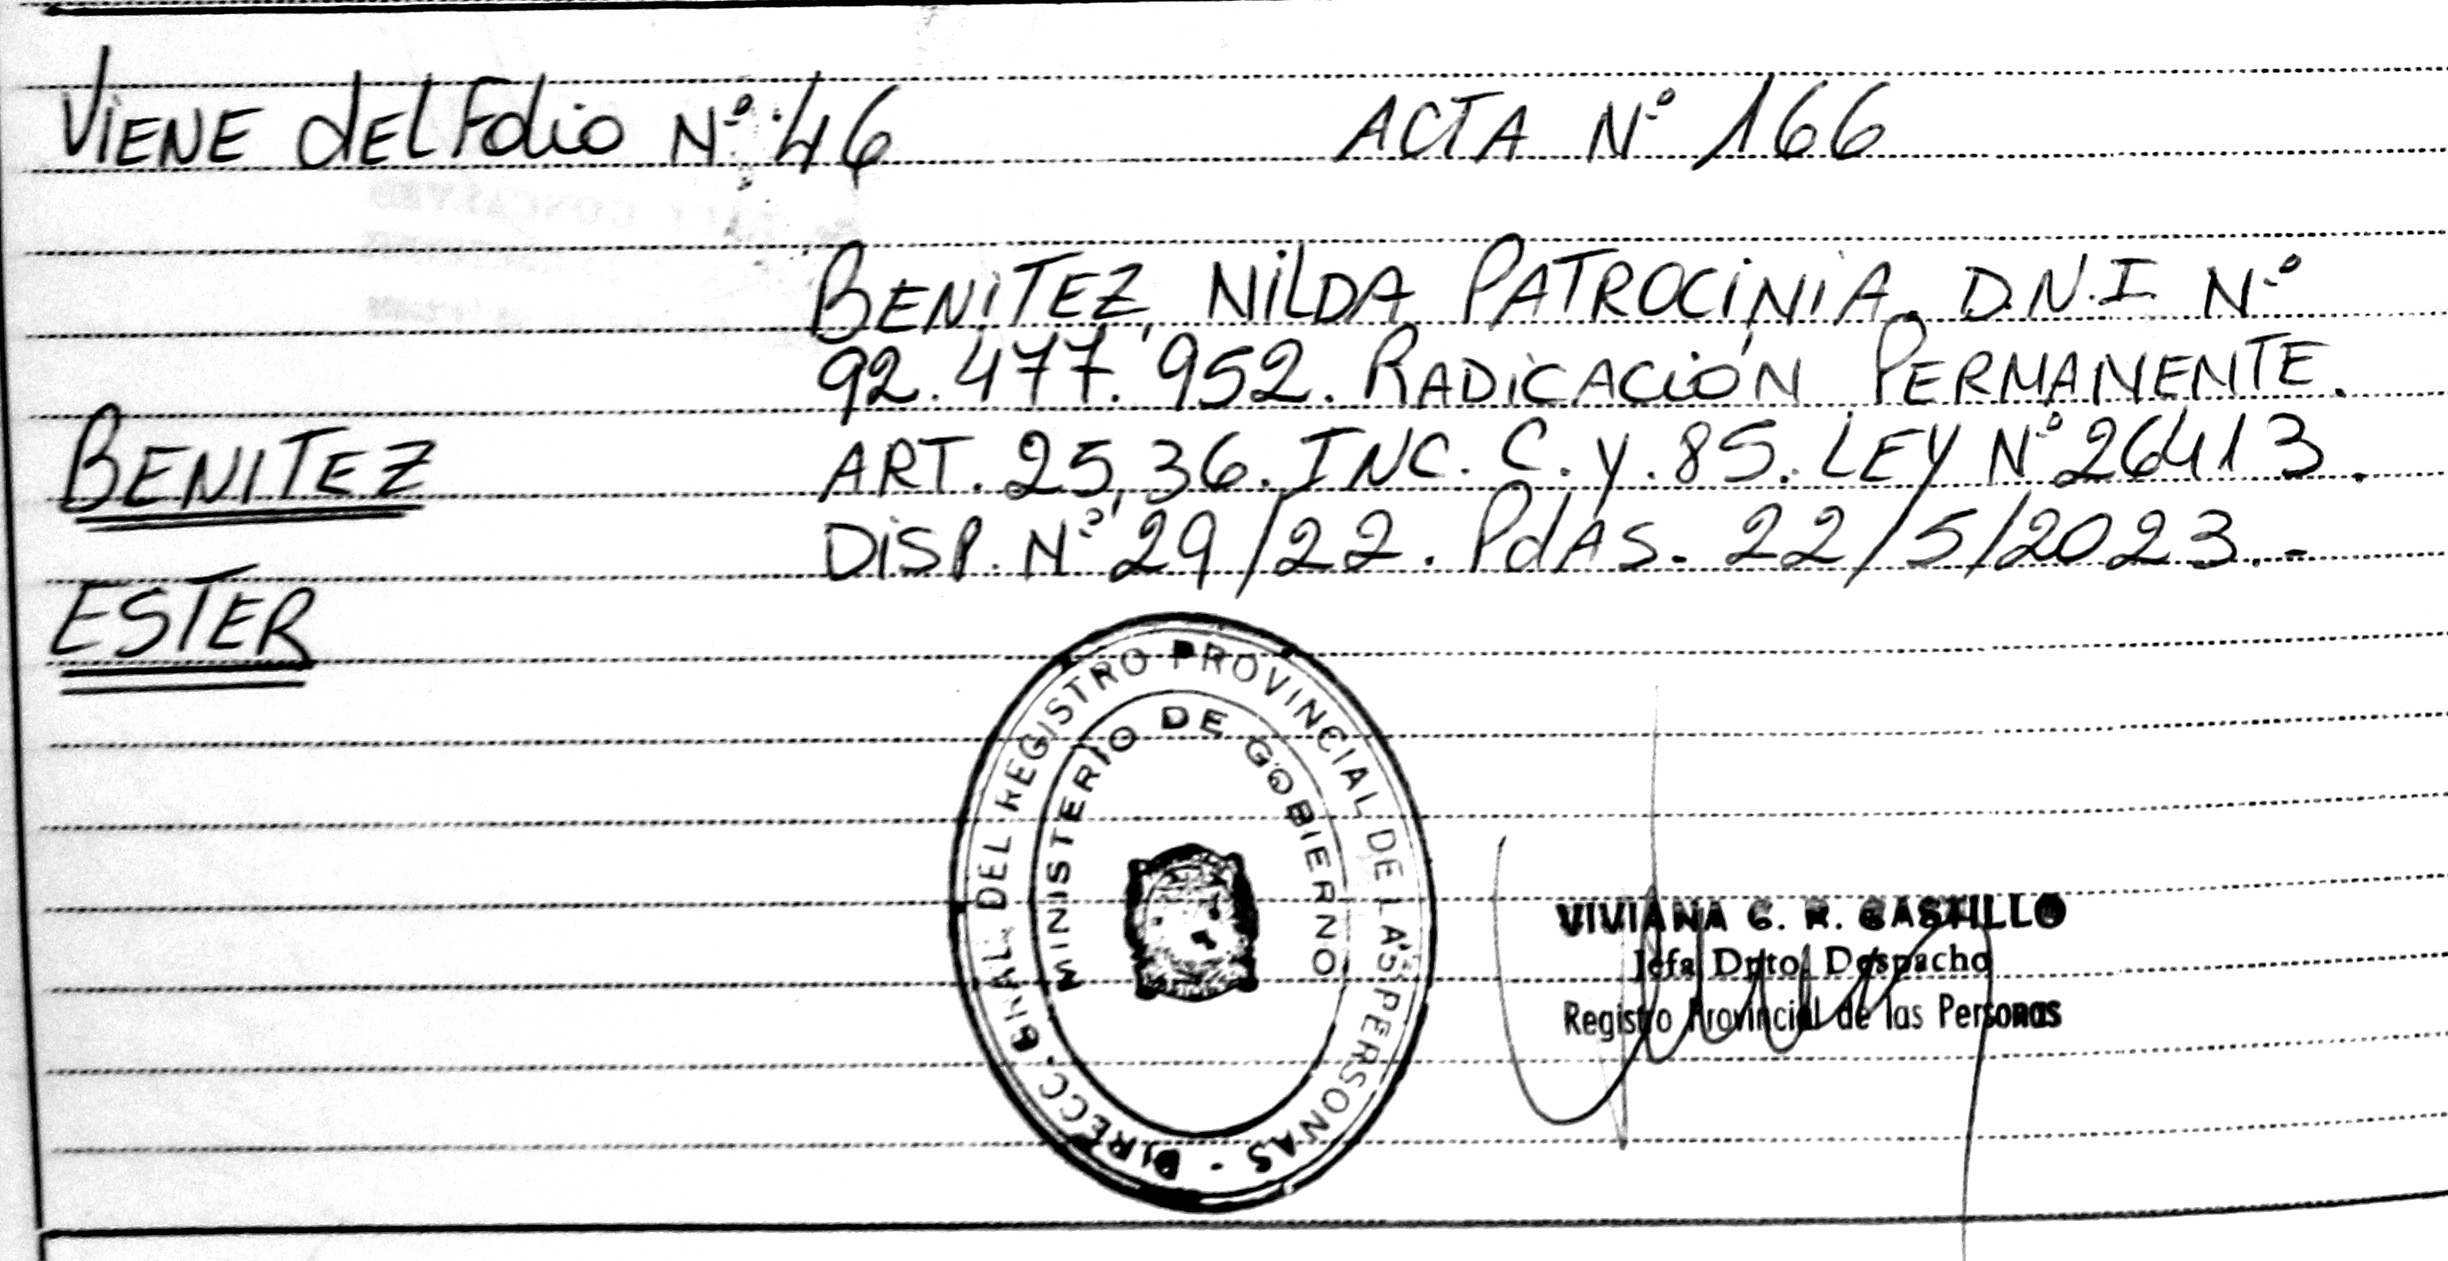 Viene del Folio Nº 46 ACTA Nº 166
BENITEZ, NILDA PATROCINIA. D.N.I. Nº
92.477.952. RADICACIÓN PERMANENTE.
BENITEZ
ART. 25, 36. INC. C. y. 85. LEY Nº 26413.
DISP. Nº 29/22. PdAS. 22/5/2023.-
ESTER
DIRECC. GRAL. DEL REGISTRO PROVINCIAL DE LAS PERSONAS -
MINISTERIO DE GOBIERNO
VIVIANA C. R. CASTILLO
Jefa Dpto. Despacho
Registro Provincial de las Personas